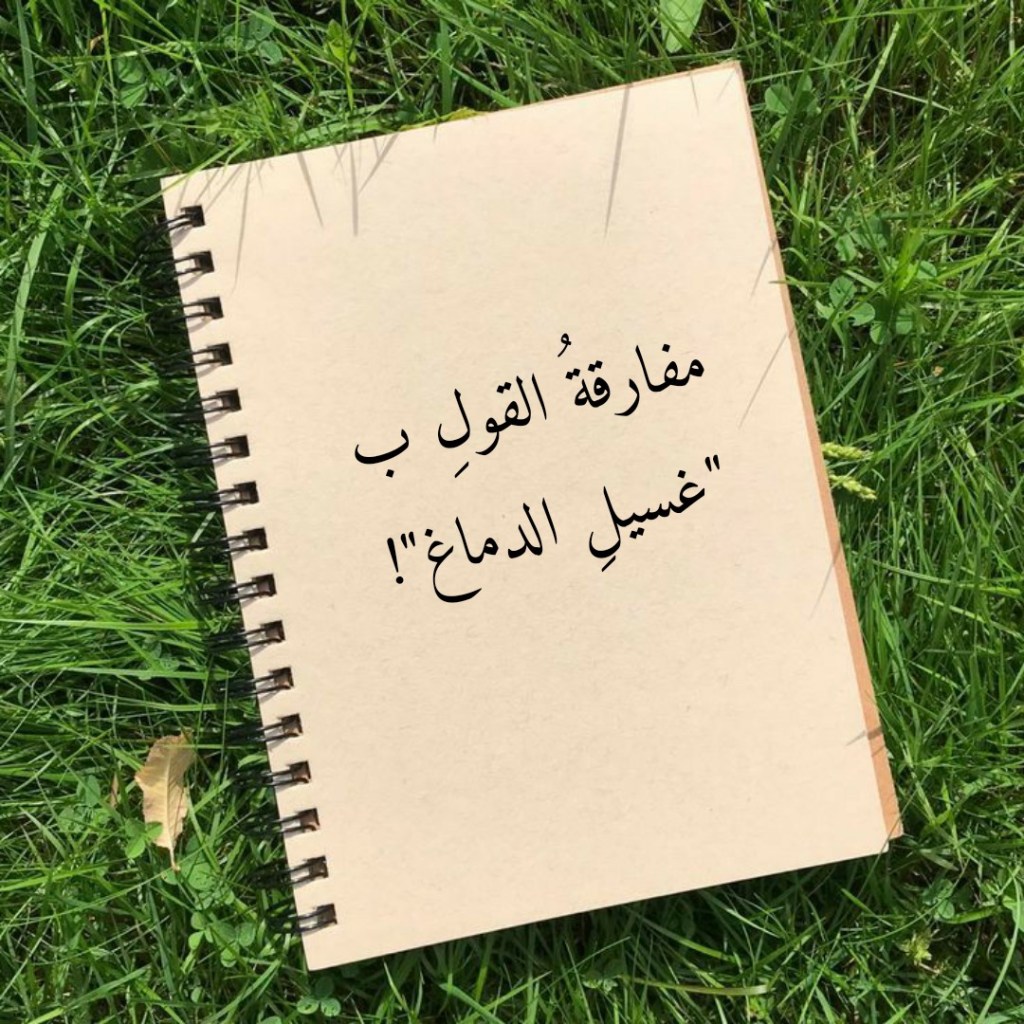 مفارقةُ القولِ ب
"غسيلِ الدماغ"!